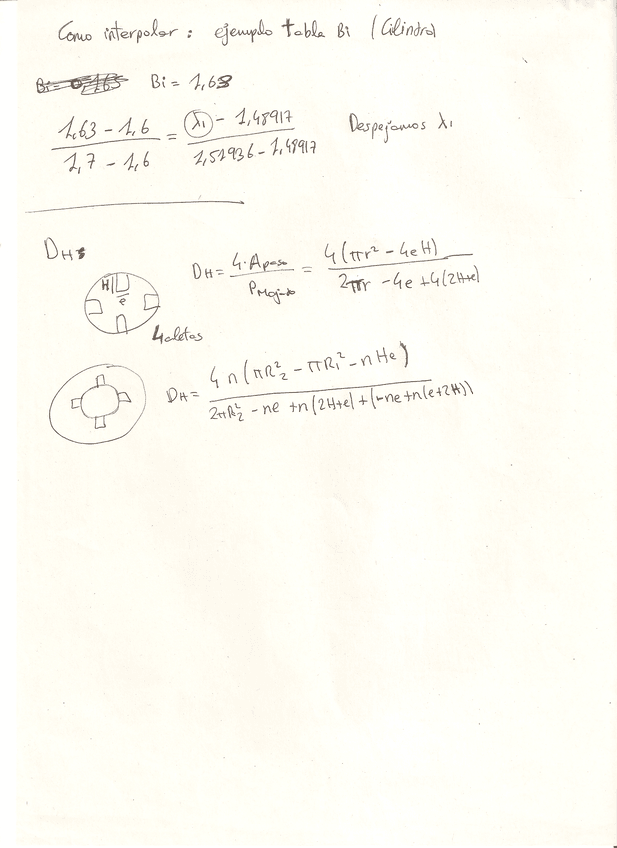 Como interpolar : ejemplo tabla Bi (Cilindro)
Bi = 1,63
(1,63 - 1,6) / (1,7 - 1,6) = (λ₁ - 1,48917) / (1,51936 - 1,48917) Despejamos λ₁
D_H:
H
e
4 aletas
D_H = 4·A_paso / P_Mojado = 4(πr² - 4eH) / (2πr - 4e + 4(2H+e))
D_H = 4 n (πR₂² - πR₁² - nHe) / (2πR₂² - ne + n(2H+e) + (-ne + n(e+2H)))